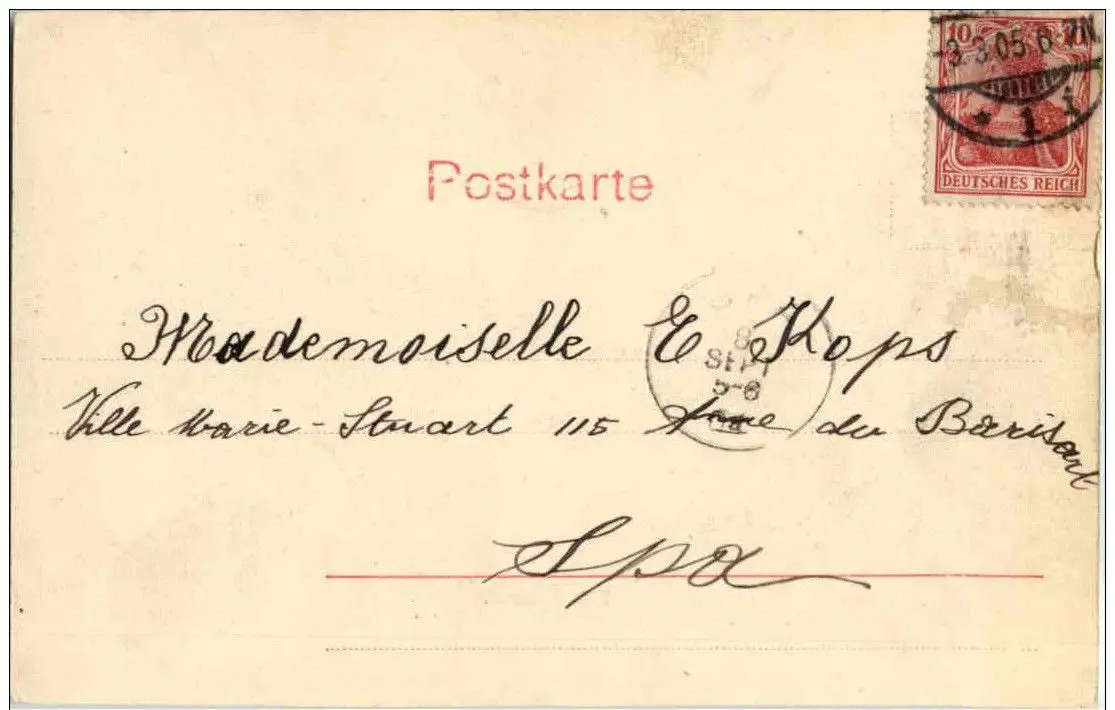 10
-3.3.05 6-7N.
* 1 i
DEUTSCHES REICH
Postkarte
Mademoiselle E Kops
8
SEPT
5-6
Ville Marie-Stuart 115 du Barisart
Spa